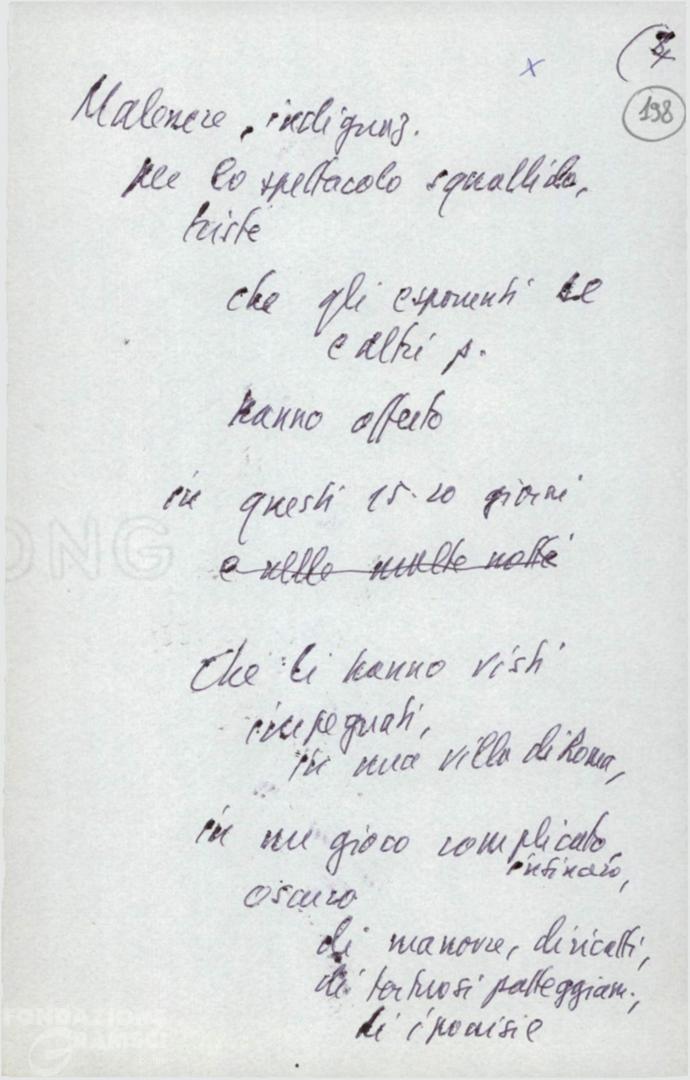 x
198
Malessere, indignaz.
per lo spettacolo squallido,
triste
che gli esponenti
e altri p.
hanno offerto
in questi 15-20 giorni
e nelle molte notti
Che li hanno visti
impegnati,
in una villa di Roma,
in un gioco complicato,
estinato,
oscuro
di manovre, di ricatti,
di tortuosi patteggiam.,
di ipocrisie
ONG
FONDAZIONE
GRAMSCI